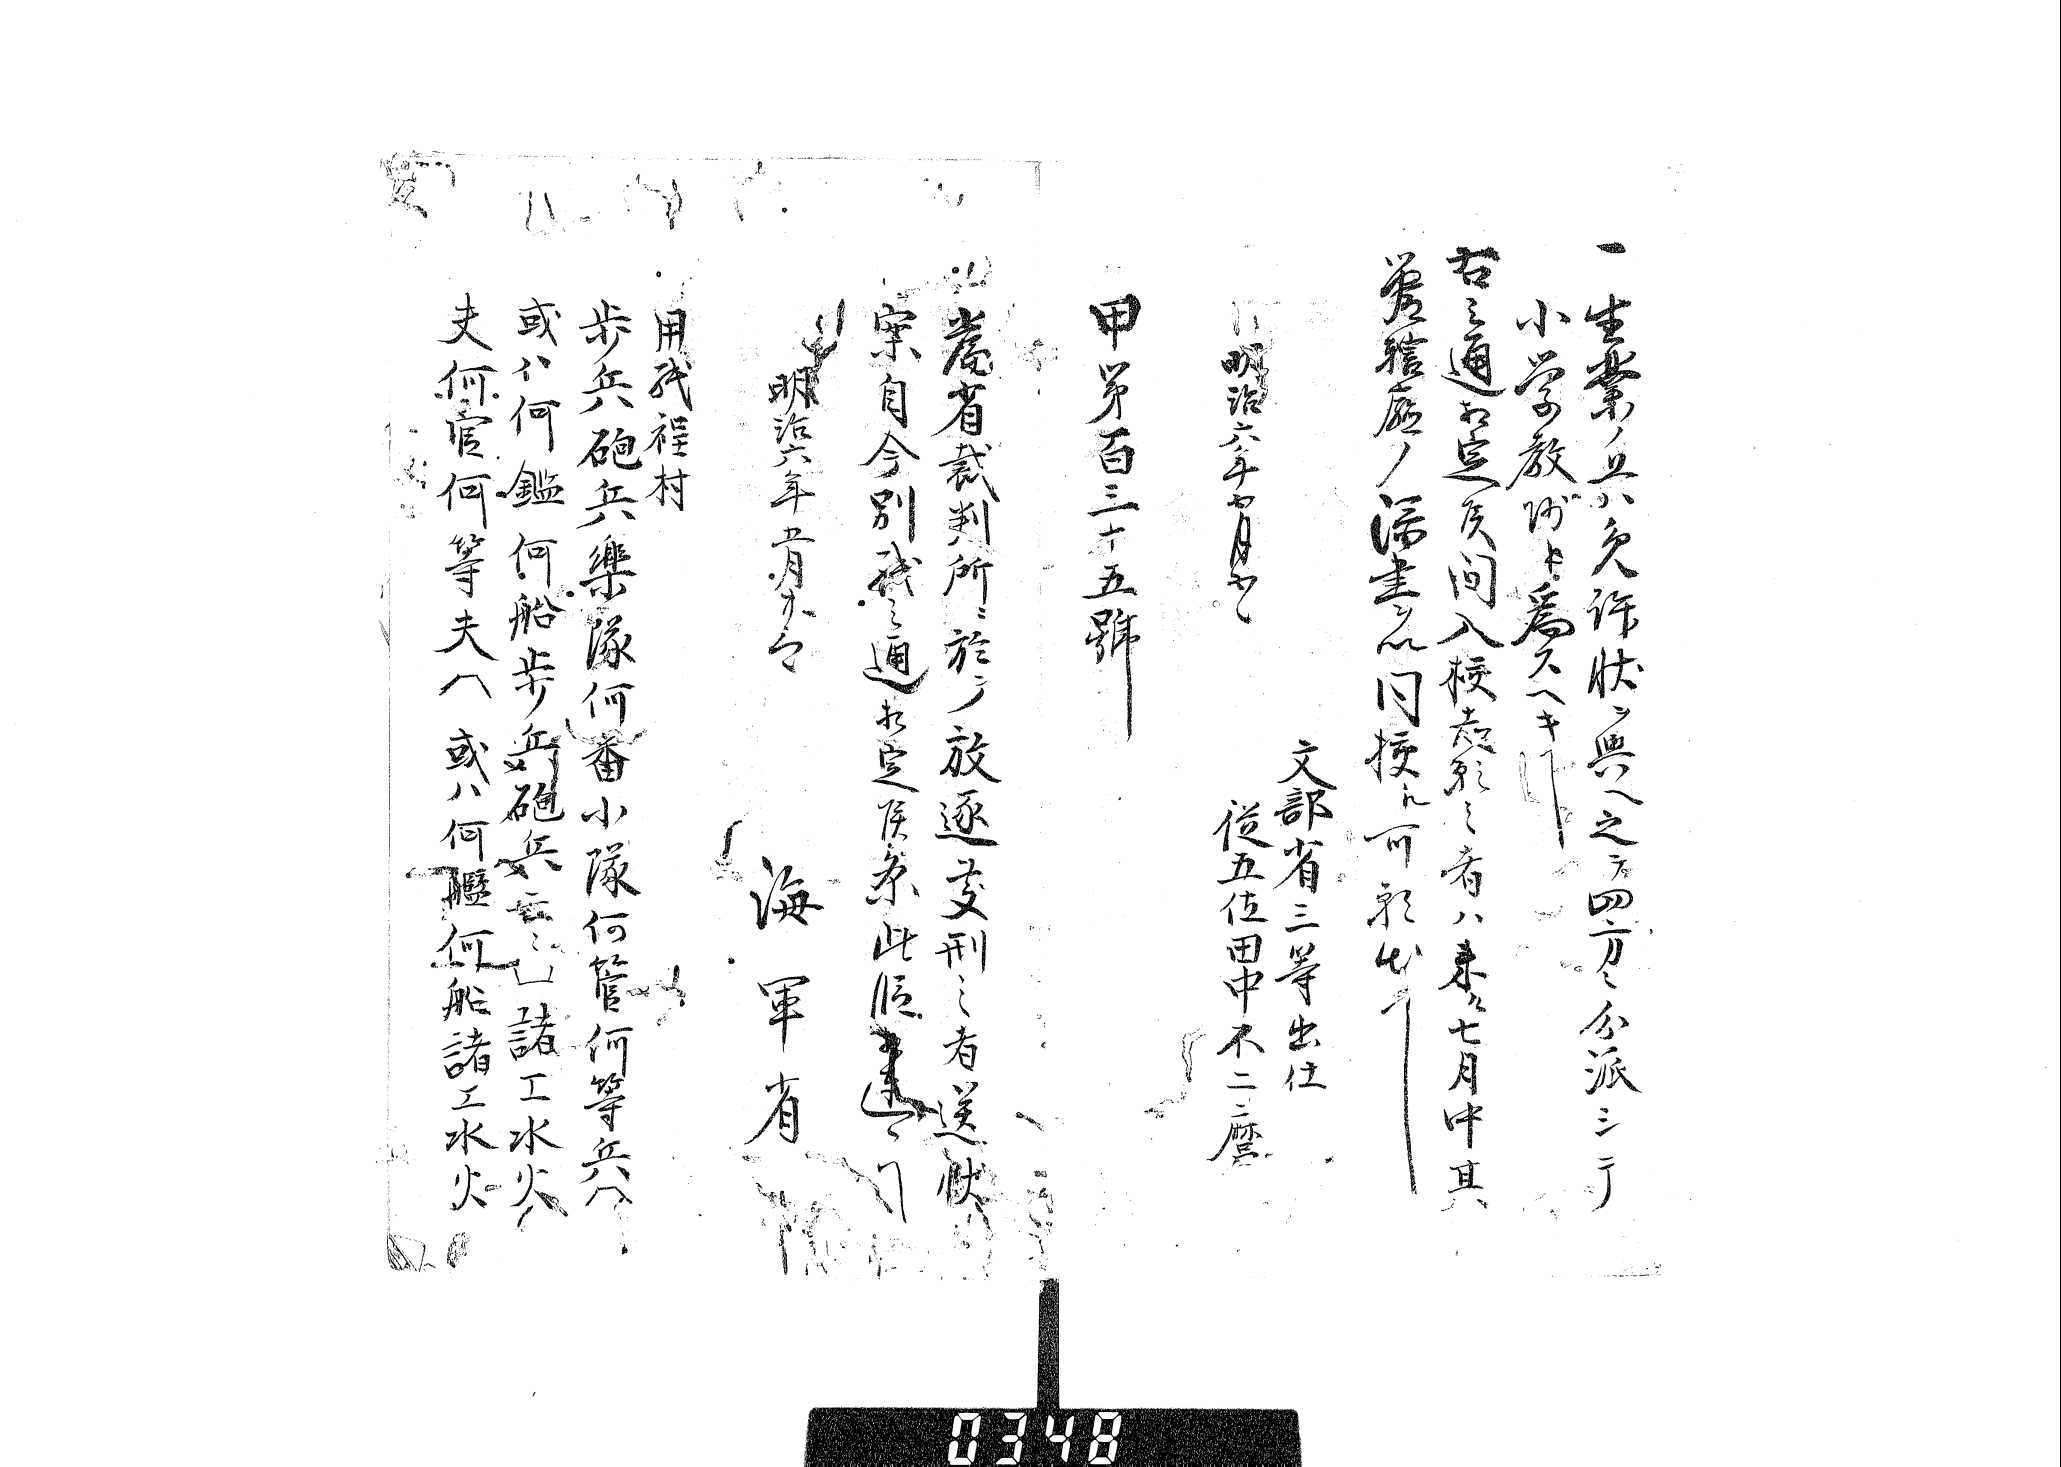 一 生業ノ上ハ免許状ヲ與ヘ之ヲ四方ニ分派シテ
小学教師ト為スヘキ事
右之通相定候間入校志願之者ハ来ル七月中其
管轄廳ノ添書ヲ以同校江可願出事
文部省三等出仕
明治六年 月 従五位田中不二麿
甲第百三十五號
當省裁判所ニ於テ放逐処刑之者送状
案自今別紙之通相定候条此段相達候事
明治六年五月 日
海軍省
用紙程村
歩兵砲兵樂隊何番小隊何管何等兵へ
或ハ何鑑何船歩兵砲兵云々諸工水火
夫何官何等夫へ或ハ何艦何船諸工水火
0348